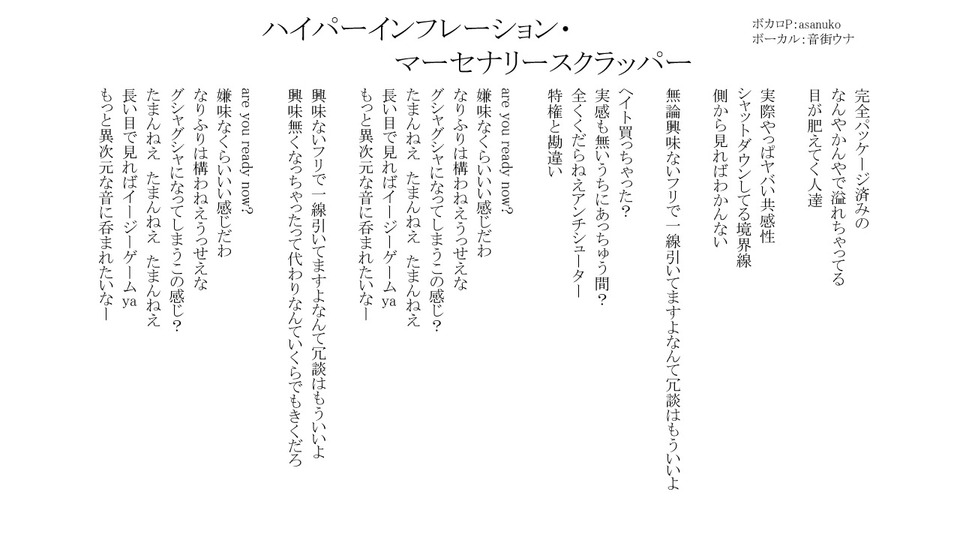 ハイパーインフレーション・
マーセナリースクラッパー
ボカロP：asanuko
ボーカル：音街ウナ
完全パッケージ済みの
なんやかんやで溢れちゃってる
目が肥えてく人達
実際やっぱヤバい共感性
シャットダウンしてる境界線
側から見ればわかんない
無論興味ないフリで一線引いてますよなんて冗談はもういいよ
ヘイト買っちゃった？
実感も無いうちにあっちゅう間？
全くくだらねえアンチシューター
特権と勘違い
are you ready now?
嫌味なくらいいい感じだわ
なりふりは構わねえうっせえな
グシャグシャになってしまうこの感じ？
たまんねえ　たまんねえ　たまんねえ
長い目で見ればイージーゲーム ya
もっと異次元な音に呑まれたいなー
興味ないフリで一線引いてますよなんて冗談はもういいよ
興味無くなっちゃったって代わりなんていくらでもきくだろ
are you ready now?
嫌味なくらいいい感じだわ
なりふりは構わねえうっせえな
グシャグシャになってしまうこの感じ？
たまんねえ　たまんねえ　たまんねえ
長い目で見ればイージーゲーム ya
もっと異次元な音に呑まれたいなー